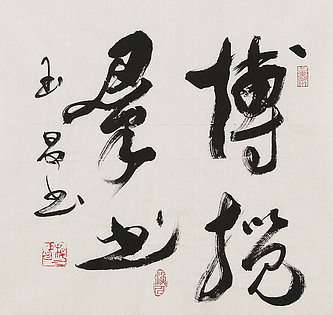 博揽
群书
玉昌书